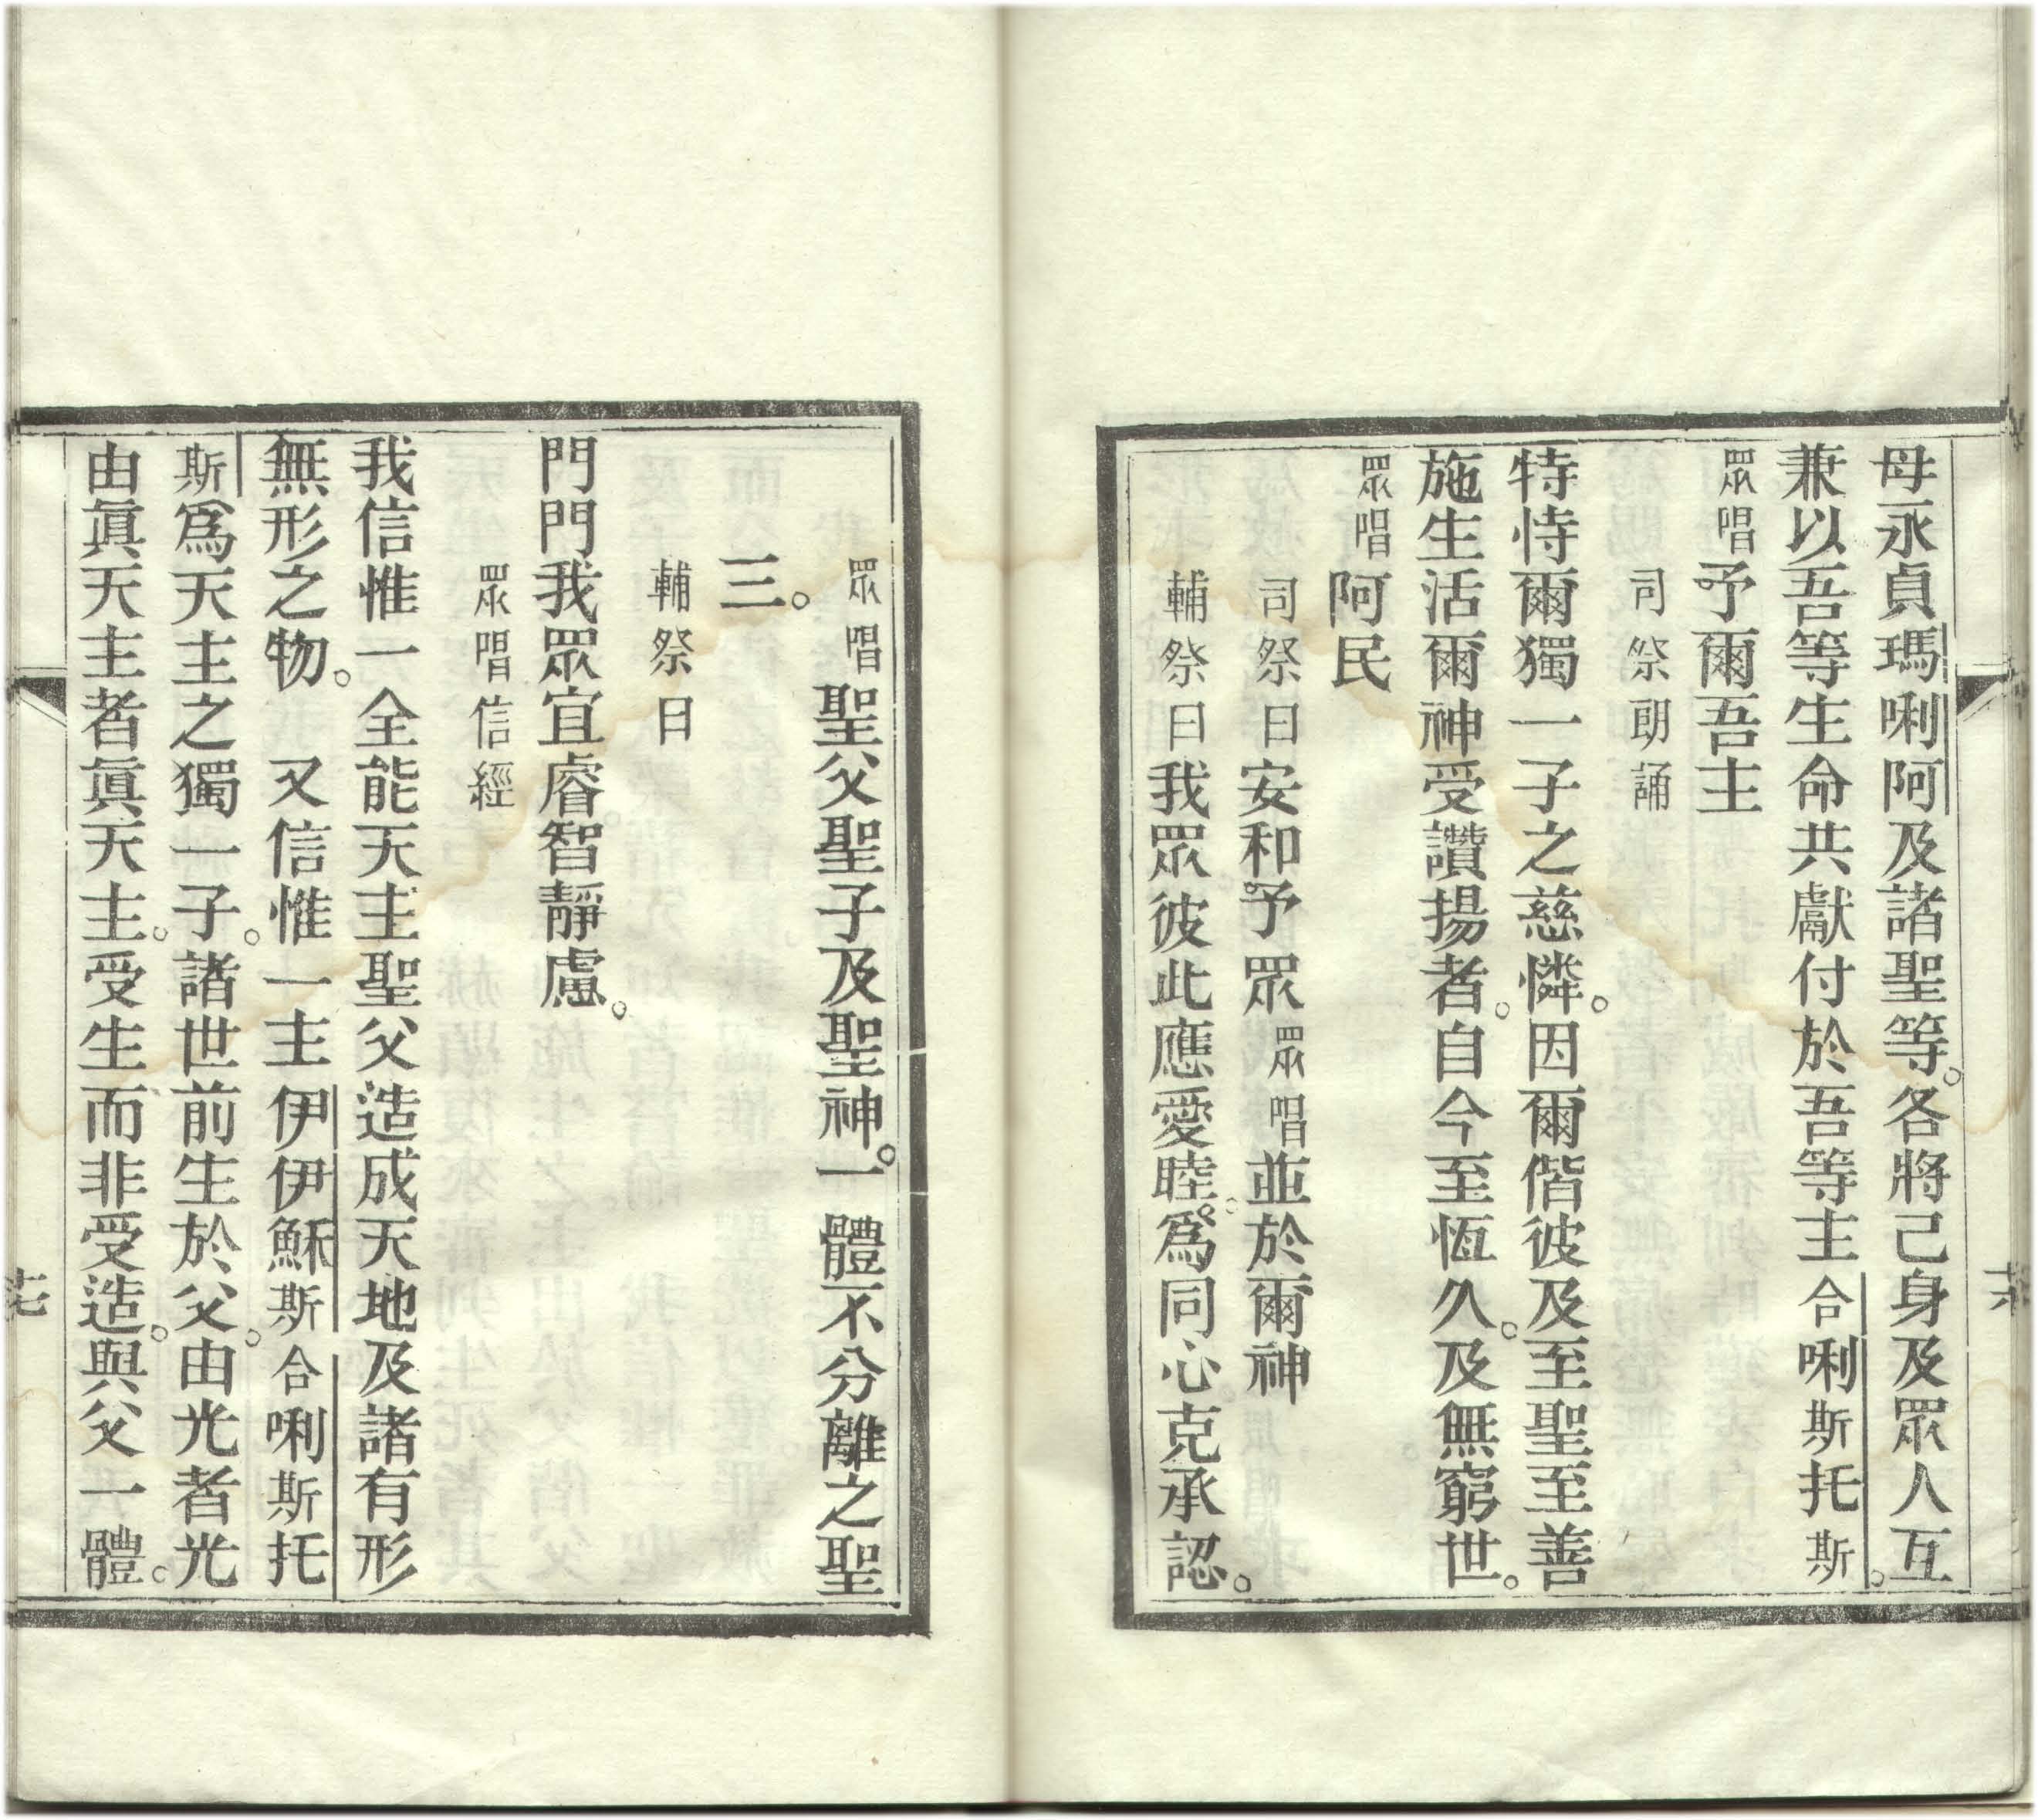 母永貞瑪唎阿及諸聖等。各將己身及眾人互。
兼以吾等生命共獻付於吾等主合唎斯托斯
眾唱予爾吾主
司祭朗誦
特恃爾獨一子之慈憐。因爾偕彼及至聖至善
施生活爾神受讚揚者。自今至恆久。及無窮世。
眾唱阿民
司祭曰安和予眾眾唱並於爾神
輔祭曰我眾彼此應愛睦。爲同心克承認。
十六
眾唱聖父聖子及聖神。一體不分離之聖
三。
輔祭曰
門門我眾宜睿智靜慮。
眾唱信經
我信惟一全能天主聖父造成天地及諸有形
無形之物。 又信惟一主伊伊穌斯合唎斯托
斯爲天主之獨一子。諸世前生於父。由光者光
由眞天主者眞天主。受生而非受造。與父一體。
十七